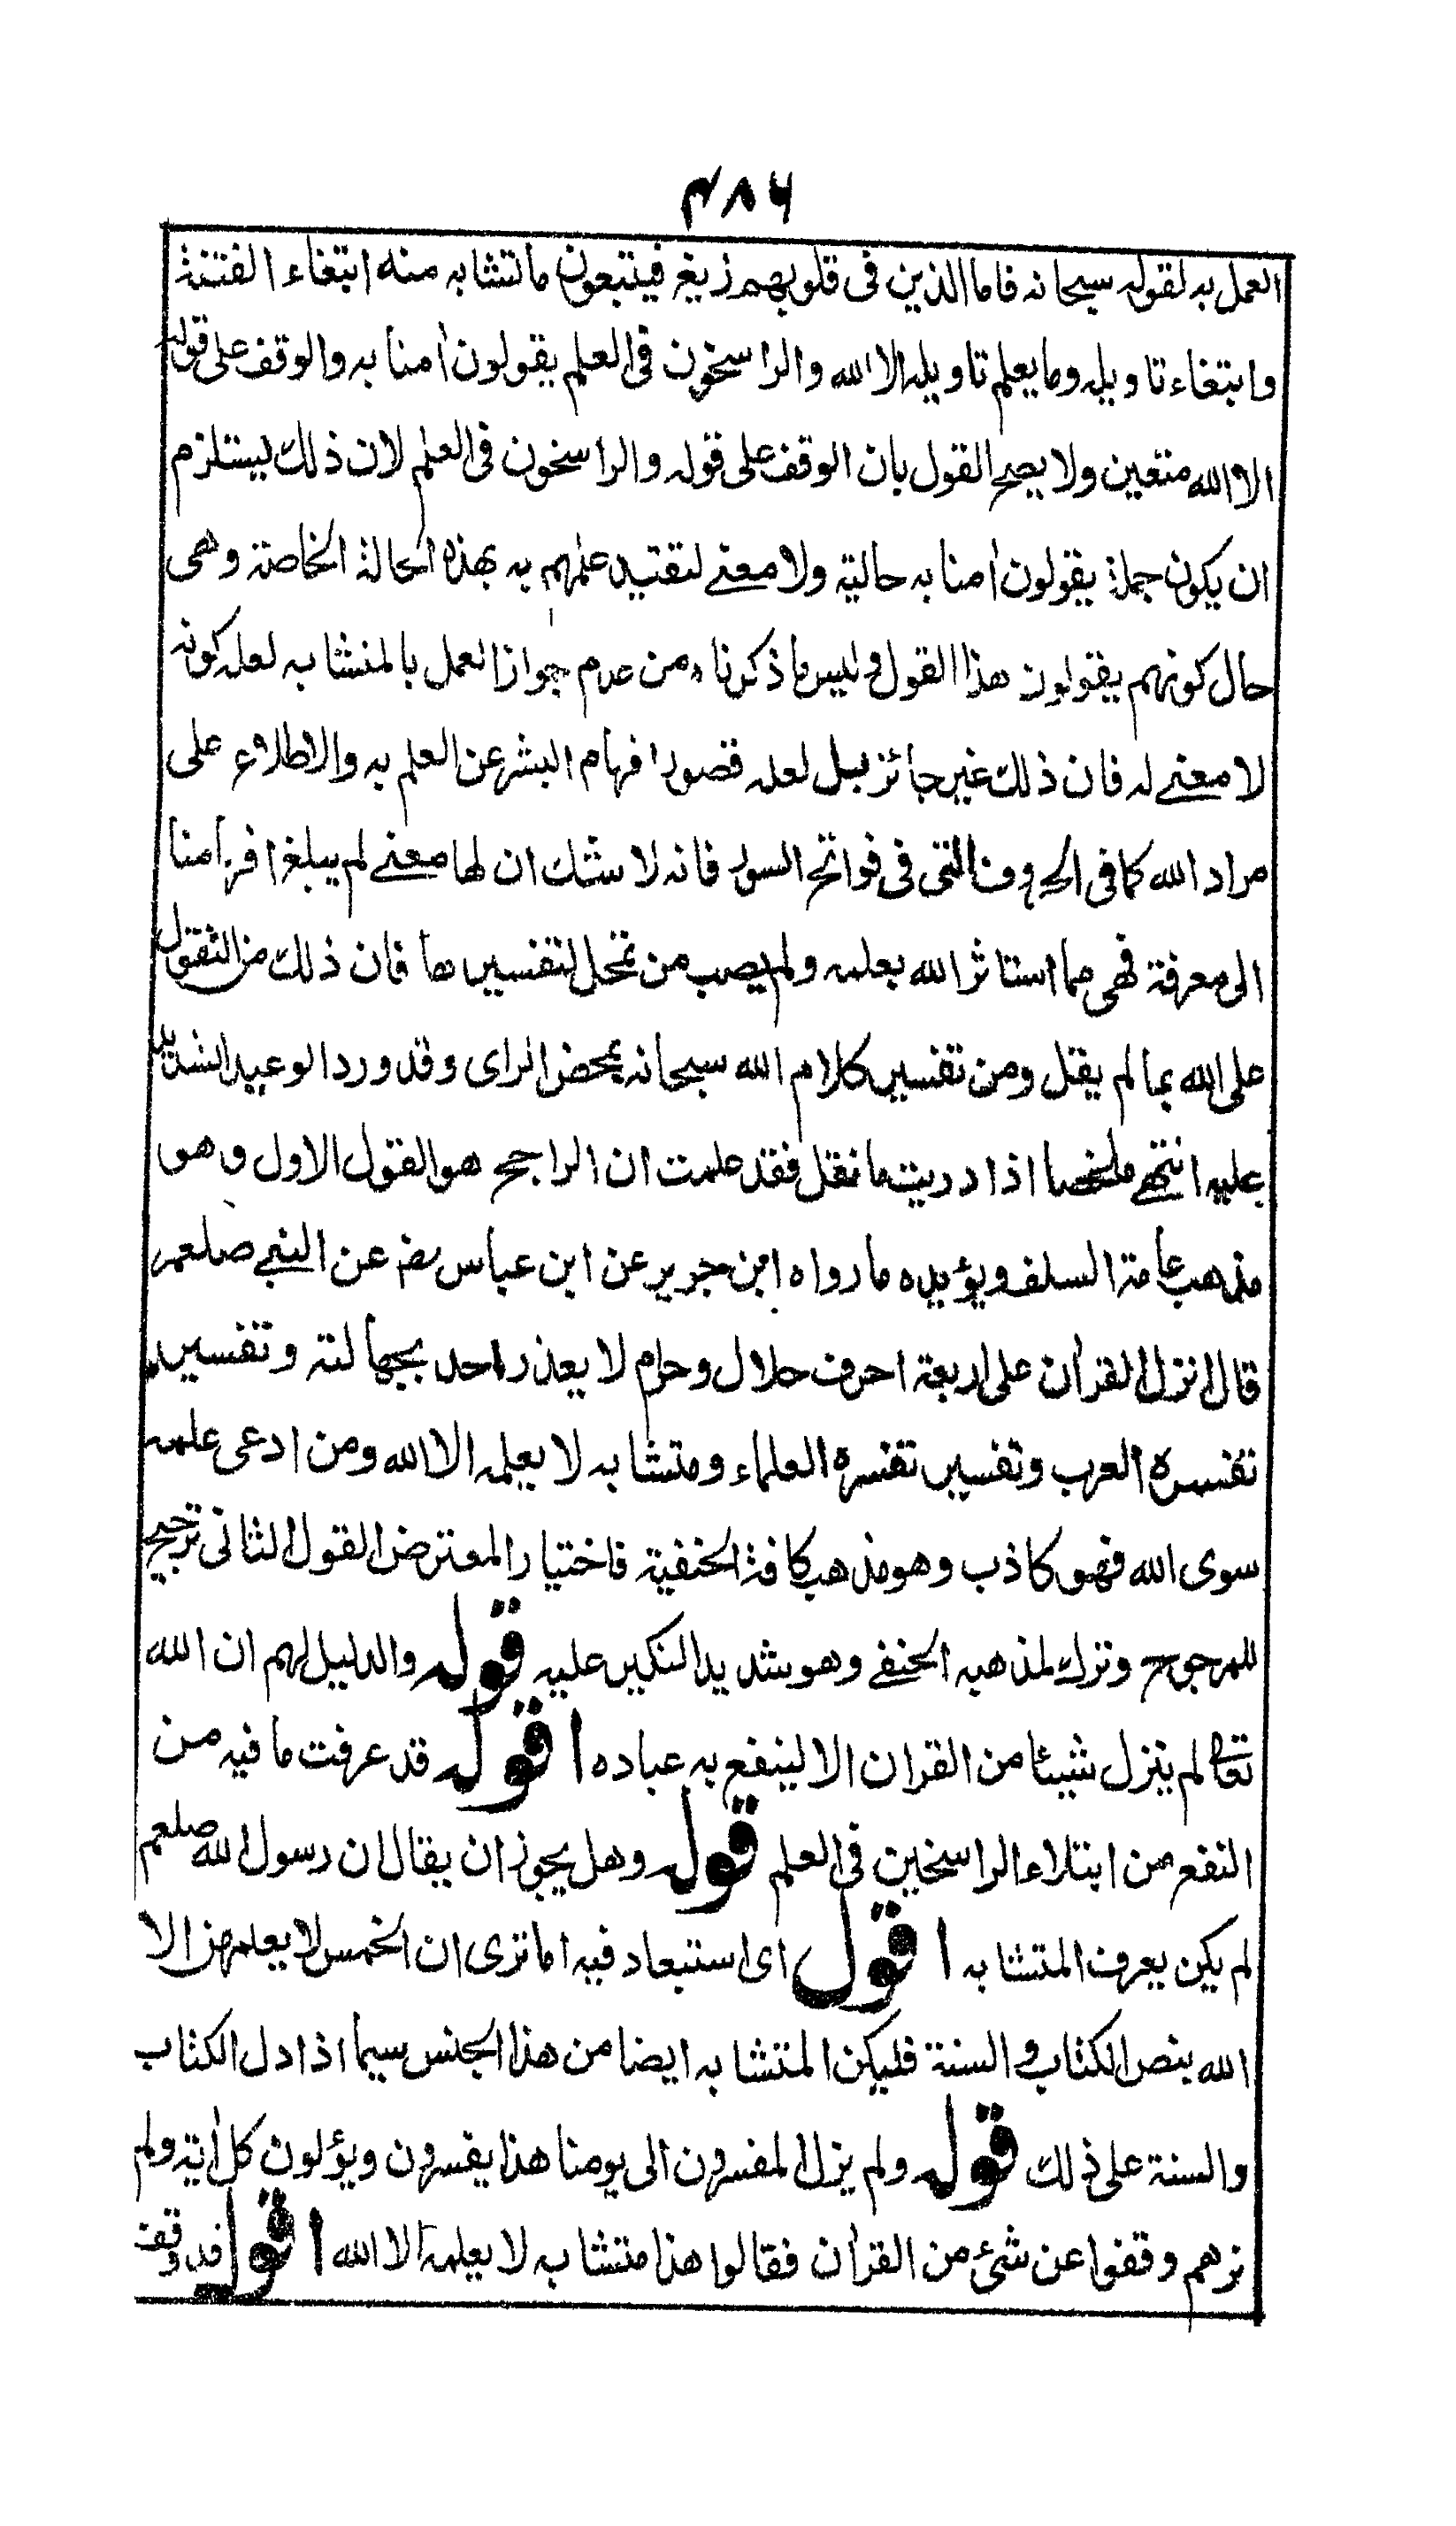 ۴۸۶
العمل به لقوله سبحانه فاما الذين فى قلوبهم زيغ فيتبعون ما تشابه منه ابتغاء الفتنة
وابتغاء تاويله وما يعلم تاويله الا الله والراسخون فى العلم يقولون اٰمنا به والوقف على قوله
الا الله متعين ولا يصح القول بان الوقف على قوله والراسخون فى العلم لان ذلك يستلزم
ان يكون جملة يقولون اٰمنا به حالية ولا معنى لتقييد علمهم به بهذه الحالة الخاصة وهى
حال كونهم يقولون هذا القول وليس ما ذكرناه من عدم جواز العمل بالمتشابه لعله كونه
لا معنى له فان ذلك غير جائز بل لعله قصور افهام البشر عن العلم به والاطلاع على
مراد الله كما فى الحروف التى فى فواتح السور فانه لا شك ان لها معنى لم يبلغ افهامنا
الى معرفة فهى مما استاثر الله بعلمه ولم يصب من تمحل لتفسيرها فان ذلك من التقول
على الله بما لم يقل ومن تفسير كلام الله سبحانه بمحض الراى وقد ورد الوعيد الشديد
عليه انتهى ملخصا اذا دريت ما نقل فقد علمت ان الراجح هو القول الاول وهو
مذهب عامة السلف ويؤيده ما رواه ابن جرير عن ابن عباس رض عن النبى صلعم
قال انزل القراٰن على اربعة احرف حلال وحرام لا يعذر احد بجهالته وتفسير
تفسره العرب وتفسير تفسره العلماء ومتشابه لا يعلمه الا الله ومن ادعى علمه
سوى الله فهو كاذب وهو مذهب كافة الحنفية فاختيار المعترض القول الثانى ترجيح
للمرجوح وترك لمذهبه الحنفى وهو شديد النكير عليه قوله والدليل لهم ان الله
تعالى لم ينزل شيئا من القران الا لينفع به عباده اقول قد عرفت ما فيه من
النفع من ابتلاء الراسخين فى العلم قوله وهل يجوز ان يقال ان رسول الله صلعم
لم يكن يعرف المتشابه اقول اى استبعاد فيه اما ترى ان الخمس لا يعلمهن الا
الله بنص الكتاب والسنة فليكن المتشابه ايضا من هذا الجنس سيما اذا دل الكتاب
والسنة على ذلك قوله ولم يزل المفسرون الى يومنا هذا يفسرون ويؤلون كل اٰية ولم
نرهم وقفوا عن شئ من القراٰن فقالوا هذا متشابه لا يعلمه الا الله اقول قد وقف